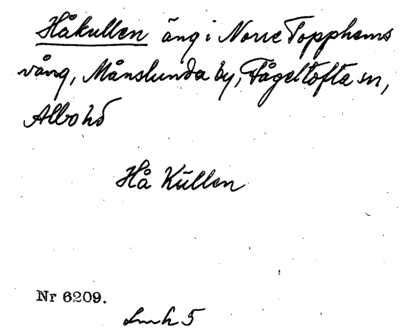 Håkullen äng i Norre Topphems
vång, Månslunda by, Fågeltofta sn,
Albo hd
Hå Kullen
Nr 6209.
Lmh 5